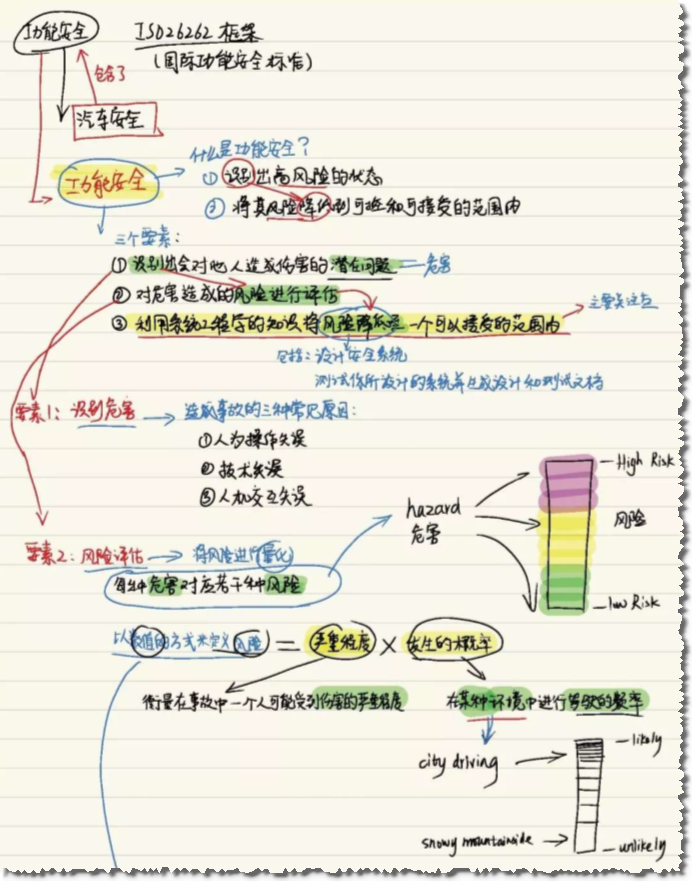 功能安全
ISO26262 框架
(国际功能安全标准)
包含了
汽车安全
什么是功能安全?
功能安全
① 识别出高风险的状态
② 将其风险降低到可控和可接受的范围内
三个要素:
① 识别出会对他人造成伤害的潜在问题 — 危害
② 对危害造成的风险进行评估
③ 利用系统工程学的知识将风险降低至一个可以接受的范围内
主要关注点
包括: 设计安全系统
测试你所设计的系统并生成设计和测试文档
要素1: 识别危害
造成事故的三种常见原因:
① 人为操作失误
② 技术失误
③ 人机交互失误
High Risk
hazard
危害
风险
low Risk
要素2: 风险评估
将风险进行量化
每种危害对应若干种风险
以数值的方式来定义风险 = 严重程度 × 发生的概率
衡量在事故中一个人可能受到伤害的严重程度
在某种环境中进行驾驶的频率
likely
city driving
snowy mountainside
unlikely